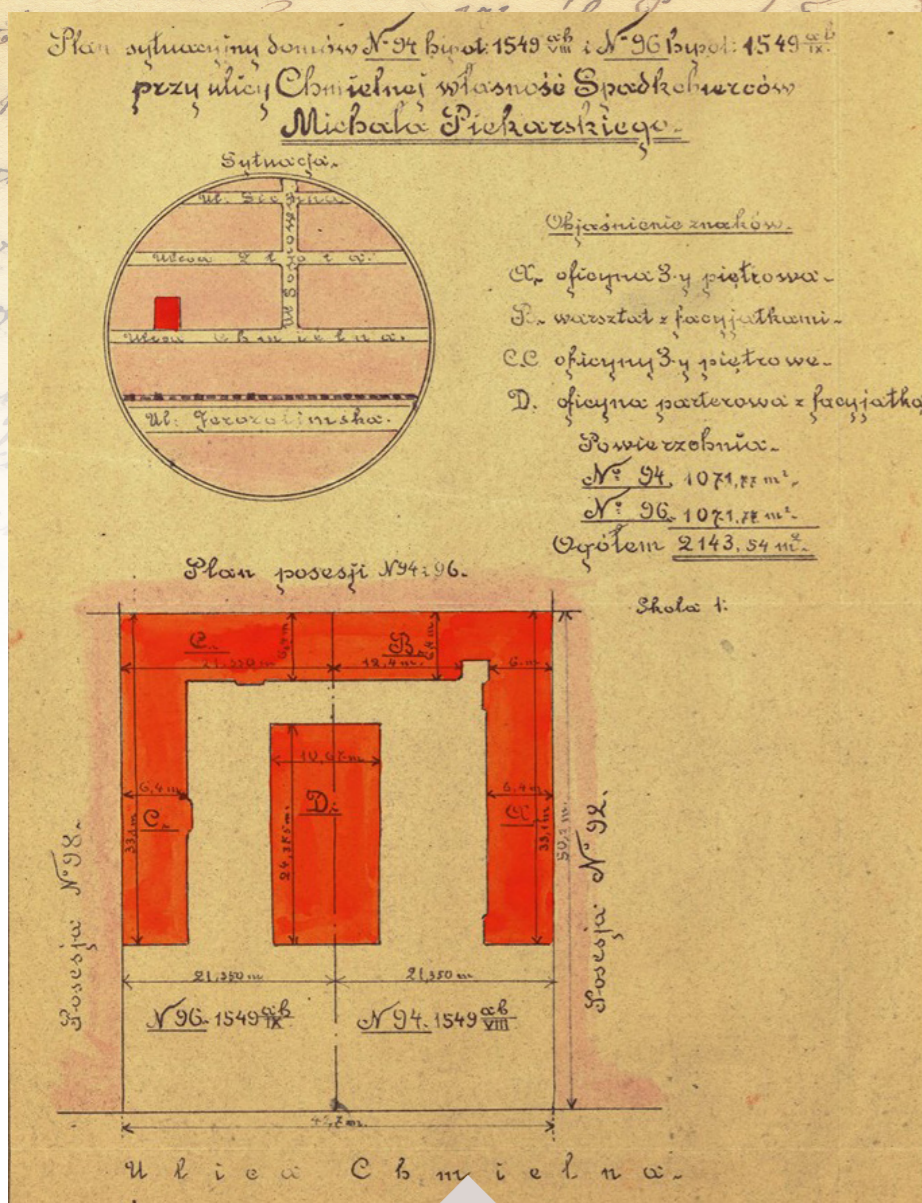 Plan sytuacyjny domów № 94 hipot: 1549 ab/VIII i № 96 hipot: 1549 ab/IX.
przy ulicy Chmielnej własność Spadkobierców
Michała Piekarskiego.
Sytuacja.
Ul. Sienna
Ulica Złota.
Ul. Sosnowa
Ulica Chmielna.
Ul. Jerozolimska.
Objaśnienie znaków.
A. oficyna 3-y piętrowa.
B. warsztat z facyjatkami.
C.C oficyny 3-y piętrowe.
D. oficyna parterowa z facyjatką
Powierzchnia.
№ 94. 1071,77 m².
№ 96. 1071,77 m².
Ogółem 2143,54 m².
Plan posesji № 94 i 96.
Skala 1:
C.
B.
6,4 m
21,350 m
12,4 m
6. m
10,67 m
6,4 m
D.
6,4 m
C.
A.
33,1 m
24,785 m
33,1 m
50,2 m.
Posesja № 98.
Posesja № 92.
21,350 m
21,350 m
№ 96. 1549 ab/IX
№ 94. 1549 ab/VIII
42,7 m.
Ulica Chmielna.